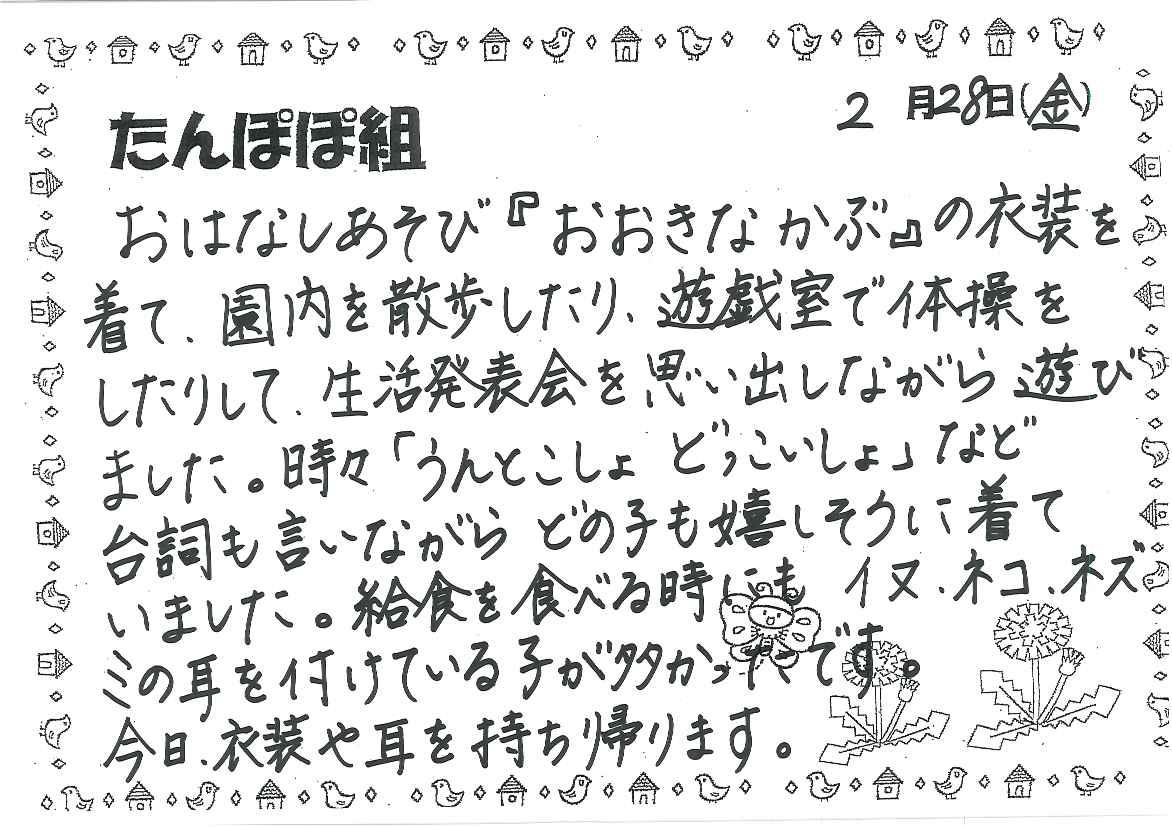 2月28日(金)
たんぽぽ組
おはなしあそび『おおきなかぶ』の衣装を
着て、園内を散歩したり、遊戯室で体操を
したりして、生活発表会を思い出しながら遊び
ました。時々「うんとこしょ どっこいしょ」など
台詞も言いながらどの子も嬉しそうに着て
いました。給食を食べる時にも イヌ、ネコ、ネズ
ミの耳を付けている子が多かったです。
今日、衣装や耳を持ち帰ります。